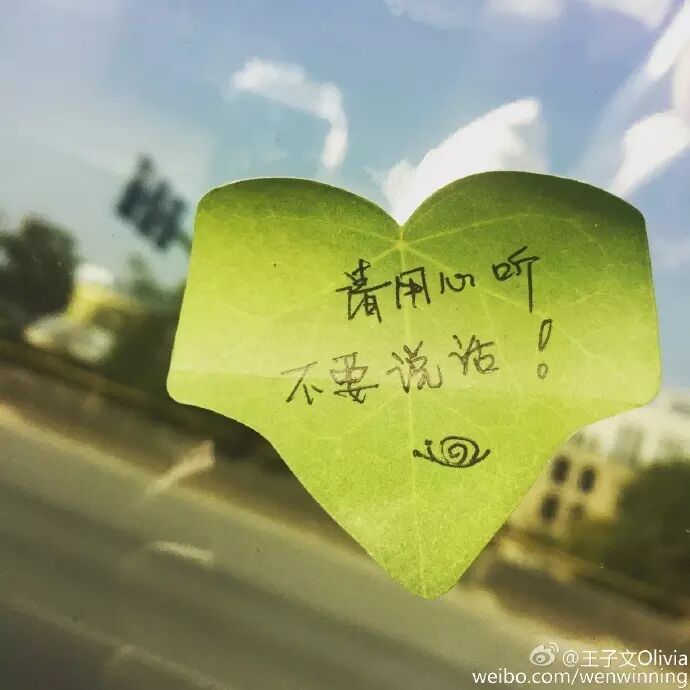 请用心听
不要说话！
@王子文Olivia
weibo.com/wenwinning